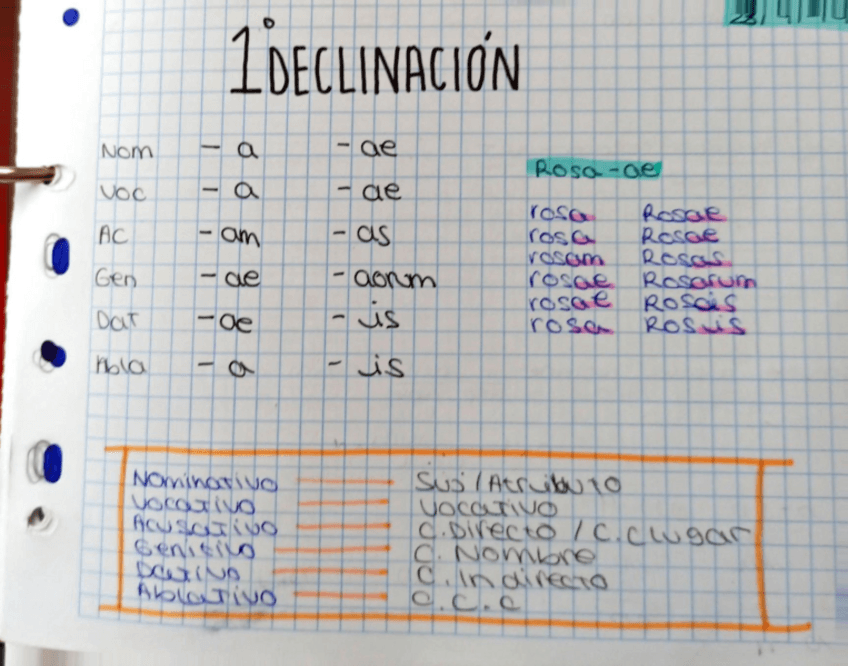 1º DECLINACIÓN
Nom - a - ae
Voc - a - ae
AC - am - as
Gen - ae - aorum
Dat - ae - is
Abla - a - is
Rosa-ae
rosa Rosae
rosa Rosae
rosam Rosas
rosae Rosarum
rosae Rosais
rosa Rosuis
Nominativo Suj / Atributo
Vocativo Vocativo
Acusativo C.Directo / C.CLugar
Genitivo C. Nombre
Dativo C. Indirecto
Ablativo C.C.C